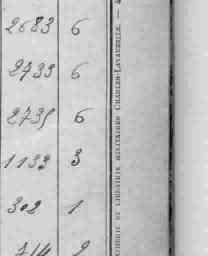 2683 6
2733 6
2735 6
1133 3
302 1
ET LIBRAIRIE MILITAIRES CHARLES-LAVAUZELLE. —